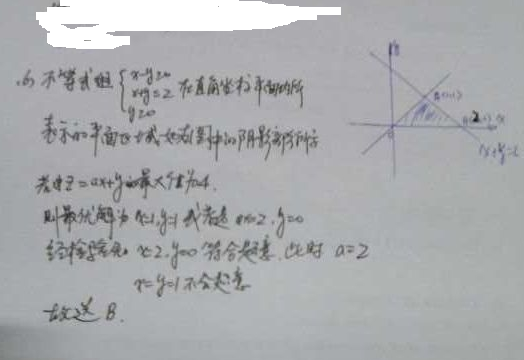 (6) 不等式组 { x-y≥0
x+y≤2 在直角坐标平面内所
y≥0
表示的平面区域如右图中的阴影部分所示
若z=ax+y的最大值为4.
则最优解为x=1,y=1或者是x=2,y=0
经检验知x=2,y=0符合题意,此时 a=2
x=y=1不合题意
故选 B.